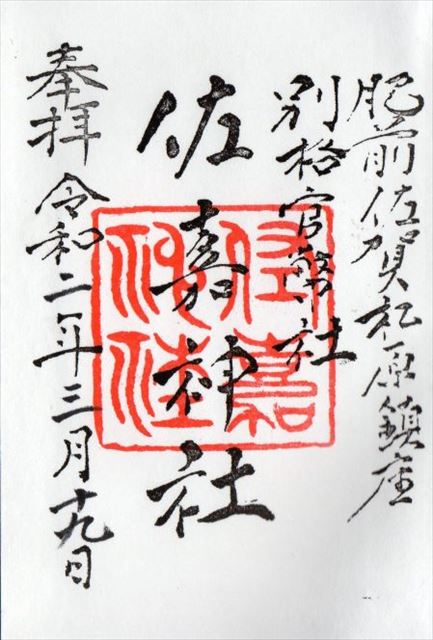 肥前佐賀松原鎮座
別格官幣社
佐嘉神社
奉拝 令和二年三月十九日
佐嘉神社